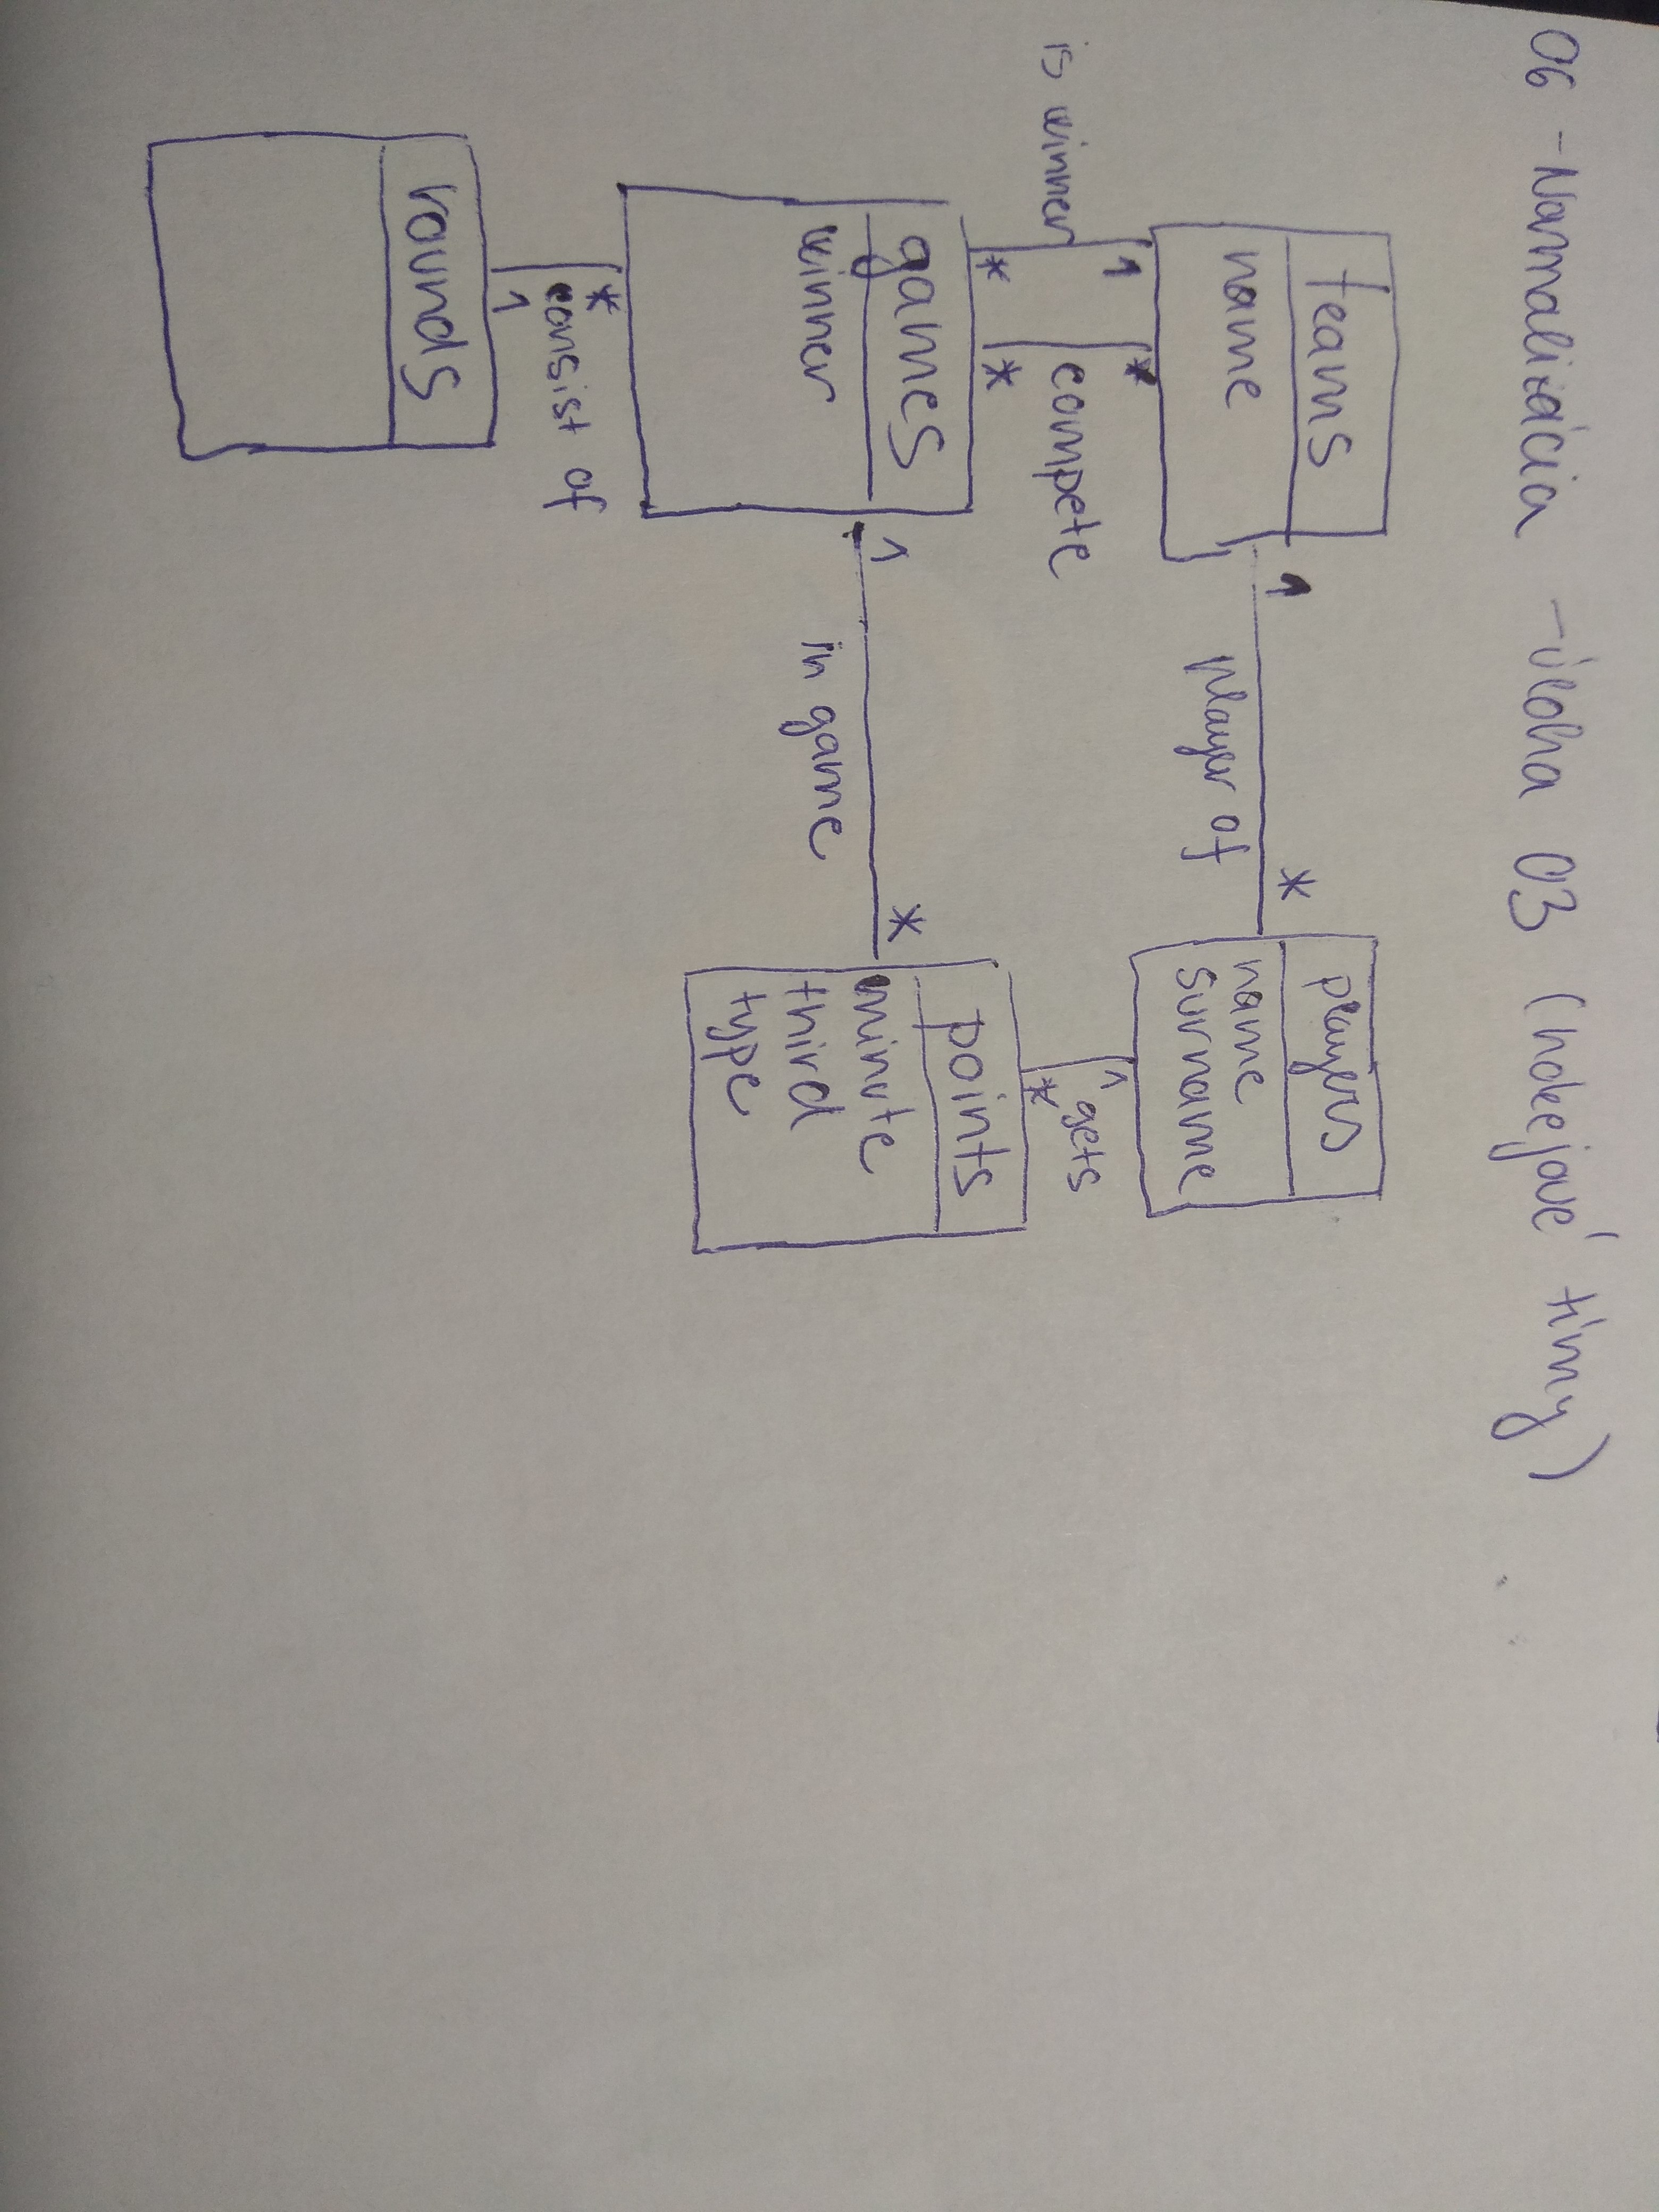 06 - Normalizácia - úloha 03 (hokejové tímy)
teams
name
1
*
player of
players
name
surname
1
*
is winner
compete
*
*
1
gets
*
games
winner
1
*
in game
points
minute
third
type
*
consist of
1
rounds